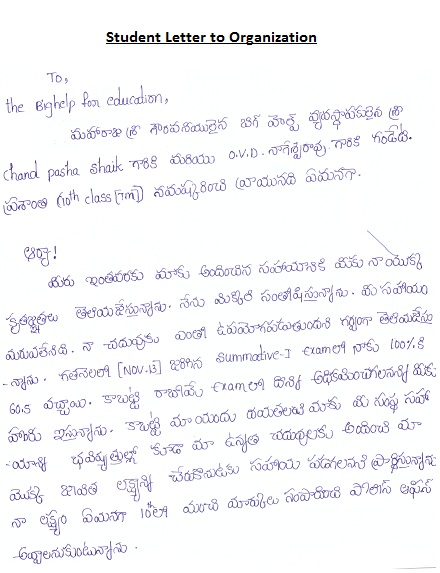 Student Letter to Organization
To,
the Bighelp for education,
మహారాజ శ్రీ గౌరవనీయులైన బిగ్ హెల్ప్ వ్యవస్థాపకులైన శ్రీ
Chand pasha shaik గారికి మరియు O.V.D. నాగేశ్వరావు. గారికి గండేటి.
ప్రశాంతి (10th class [7m]) నమష్కరించి వ్రాయునది ఏమనగా.
ఆర్యా!
మీరు ఇంతవరకు మాకు అందించిన సహాయానికి మీకు నా యొక్క
కృతజ్ఞతలు తెలియజేస్తున్నాను. నేను మిక్కిలి సంతోషిస్తున్నాను. మీ సహాయం
మరువలేనిది. నా చదువుకు ఎంతో ఉపయోగపడుతుందని గర్వంగా తెలియజేస్తు
-న్నాను. గతనెలలో [NOV.13] జరిగిన Summative-I examలో నాకు 100%కి
60.5 వచ్చాయి. కాబట్టి రాబోయే examలో దీనిని అధికమించగలనని మీకు
హామీ ఇస్తున్నాను. కాబట్టి మా యందు దయతలచి మాకు మీ సంస్థ సహా
-యాన్ని భవిష్యత్తుల్లో కూడా మా ఉన్నత చదువులకు అందించి మా
యొక్క జీవిత లక్ష్యాన్ని చేరుకొనుటకు సహాయ పడగలనని ప్రార్థిస్తున్నాను
నా లక్ష్యం ఏమనగా 10thలో మంచి మార్కులు సంపాదించి పోలీస్ ఆఫీసర్
-అవ్వాలనుకుంటున్నాను.